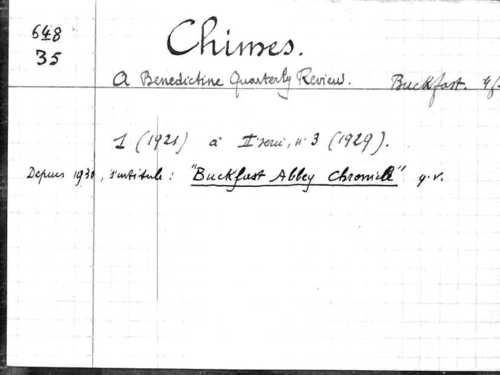 648
35
Chimes.
A Benedictine Quarterly Review. Buckfast.
1 (1921) à II série, n° 3 (1929).
Depuis 1930, s'intitule : "Buckfast Abbey Chronicle" q.v.